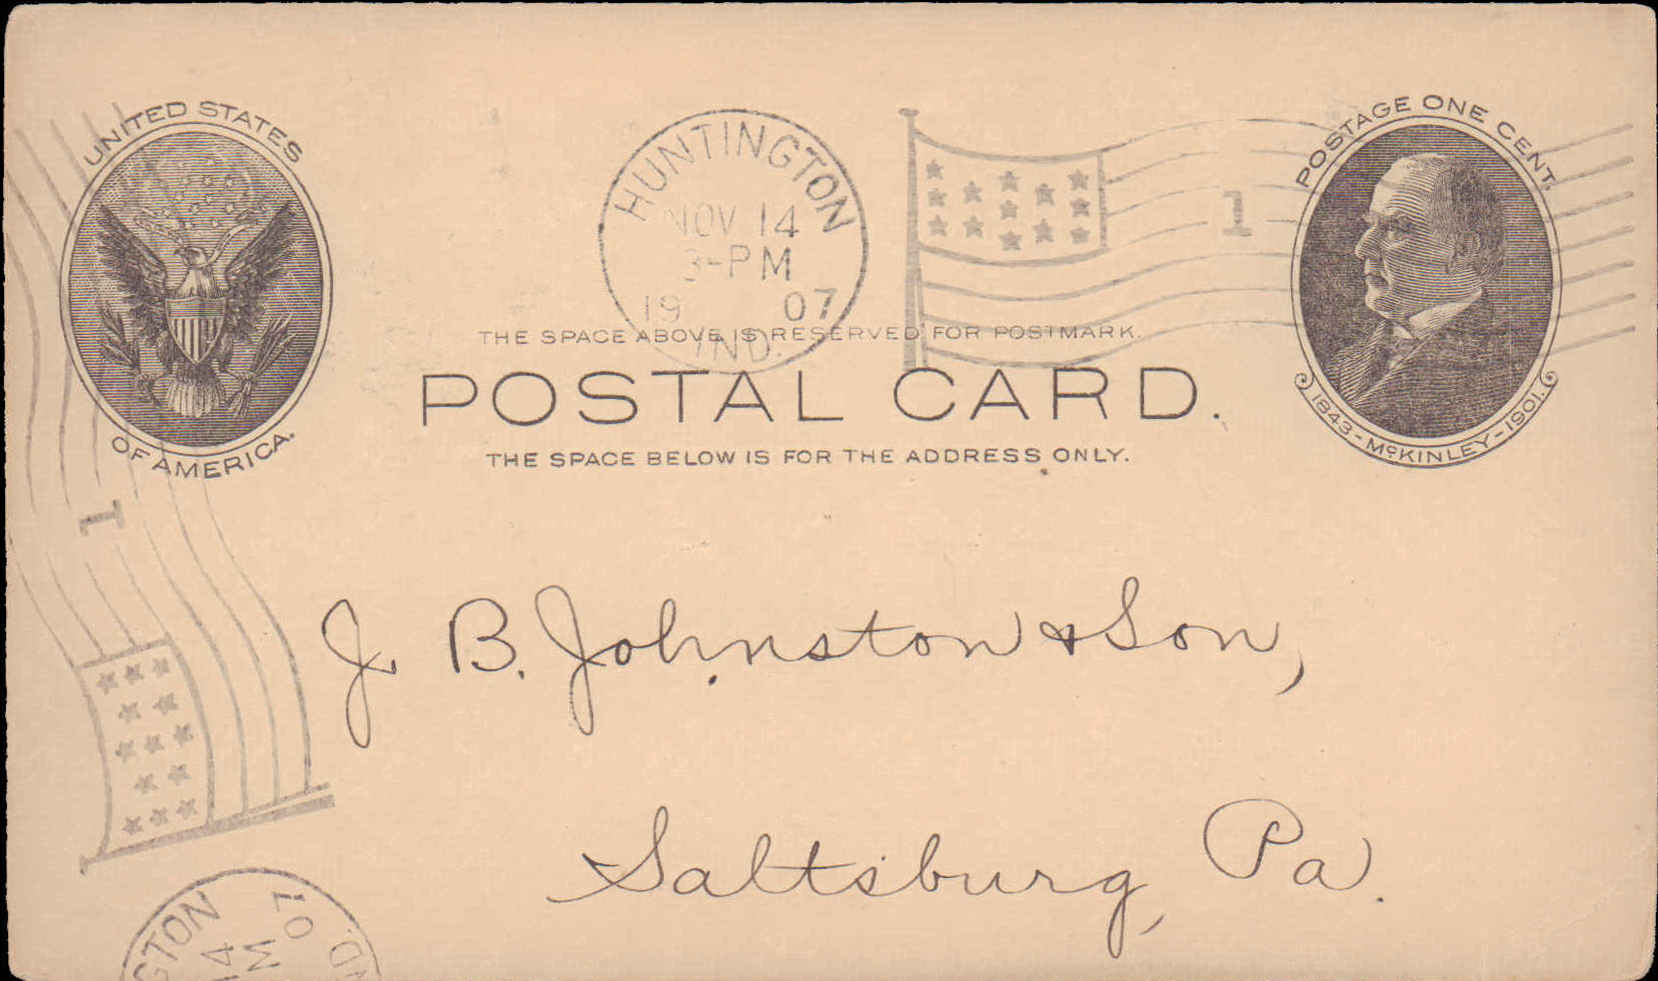 UNITED STATES
OF AMERICA.
HUNTINGTON
NOV 14
3-PM
1907
IND.
1
POSTAGE ONE CENT.
1843-McKINLEY-1901.
THE SPACE ABOVE IS RESERVED FOR POSTMARK.
POSTAL CARD.
THE SPACE BELOW IS FOR THE ADDRESS ONLY.
1
J. B. Johnston & Son,
Saltsburg, Pa.
GTON
14
M
07
ND.